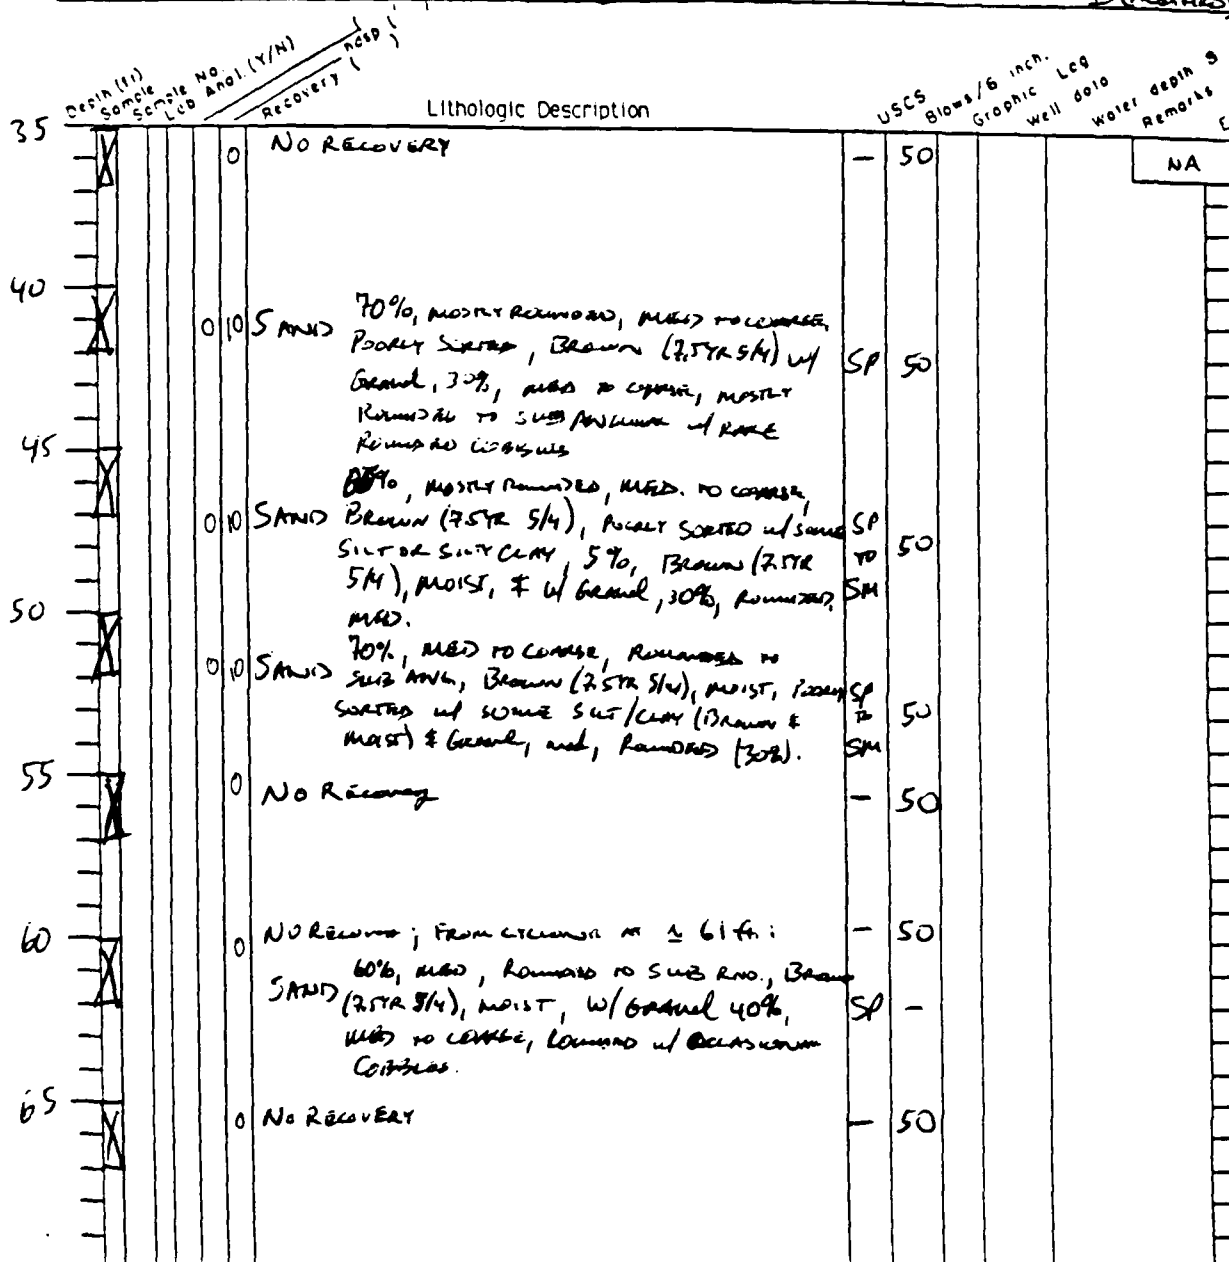 Depth (ft)
Sample
Sample No.
Lab Anal. (Y/N)
Recovery (
Lithologic Description
USCS
Blows/6 inch.
Graphic Log
Well data
Water depth
Remarks
35
0 NO RECOVERY - 50
NA
40
0 10 SAND 70%, MOSTLY ROUNDED, MED TO COARSE,
POORLY SORTED, BROWN (7.5YR 5/4) w/ SP 50
GRAVEL, 30%, MED TO COARSE, MOSTLY
ROUNDED TO SUB ANGULAR w/ RARE
ROUNDED COBBLES
45
65%, MOSTLY ROUNDED, MED. TO COARSE,
0 10 SAND BROWN (7.5YR 5/4), POORLY SORTED w/ SOME SP
SILT OR SILTY CLAY, 5%, BROWN (7.5YR TO 50
5/4), MOIST, & w/ GRAVEL, 30%, ROUNDED, SM
MED.
50
70%, MED TO COARSE, ROUNDED TO
0 10 SAND SUB ANG, BROWN (7.5YR 5/4), MOIST, POORLY SP
SORTED w/ SOME SILT/CLAY (BROWN & TO 50
MOIST) & GRAVEL, med, ROUNDED (30%). SM
55
0 NO Recovery - 50
60
0 NO RECOVERY; FROM CYCLONE AT ≈ 61 ft: - 50
60%, MED, ROUNDED TO SUB RND., BROWN
SAND (7.5YR 5/4), MOIST, W/ GRAVEL 40%, SP -
MED TO COARSE, ROUNDED w/ OCCASIONAL
COBBLES.
65
0 NO RECOVERY - 50